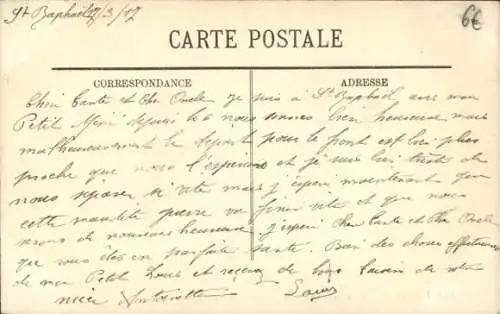 St Raphaël 7/3/17
6€
CARTE POSTALE
CORRESPONDANCE
ADRESSE
Cher Tante et Cher Oncle je suis à St Raphaël avec mon
Petit depuis le 6 nous sommes bien heureuse mais
malheureusement le depart pour le front est bien plus
proche que nous l'esperions et je suis bien triste de
nous separer si vite mais j'espère maintenant que
cette maudite guerre va finir vite et que nous
serons de nouveau heureuse. J'espère Cher Tante et Cher Oncle
que vous êtes en parfaite santé. Bien des choses affectueuses
de mon Petit Loué et recevez de bons baisers de votre
nièce Antoinette
Louis